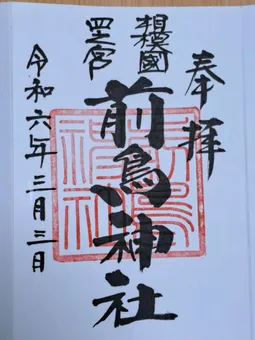 奉拝
相模國
四之宮
前鳥神社
令和六年三月三日